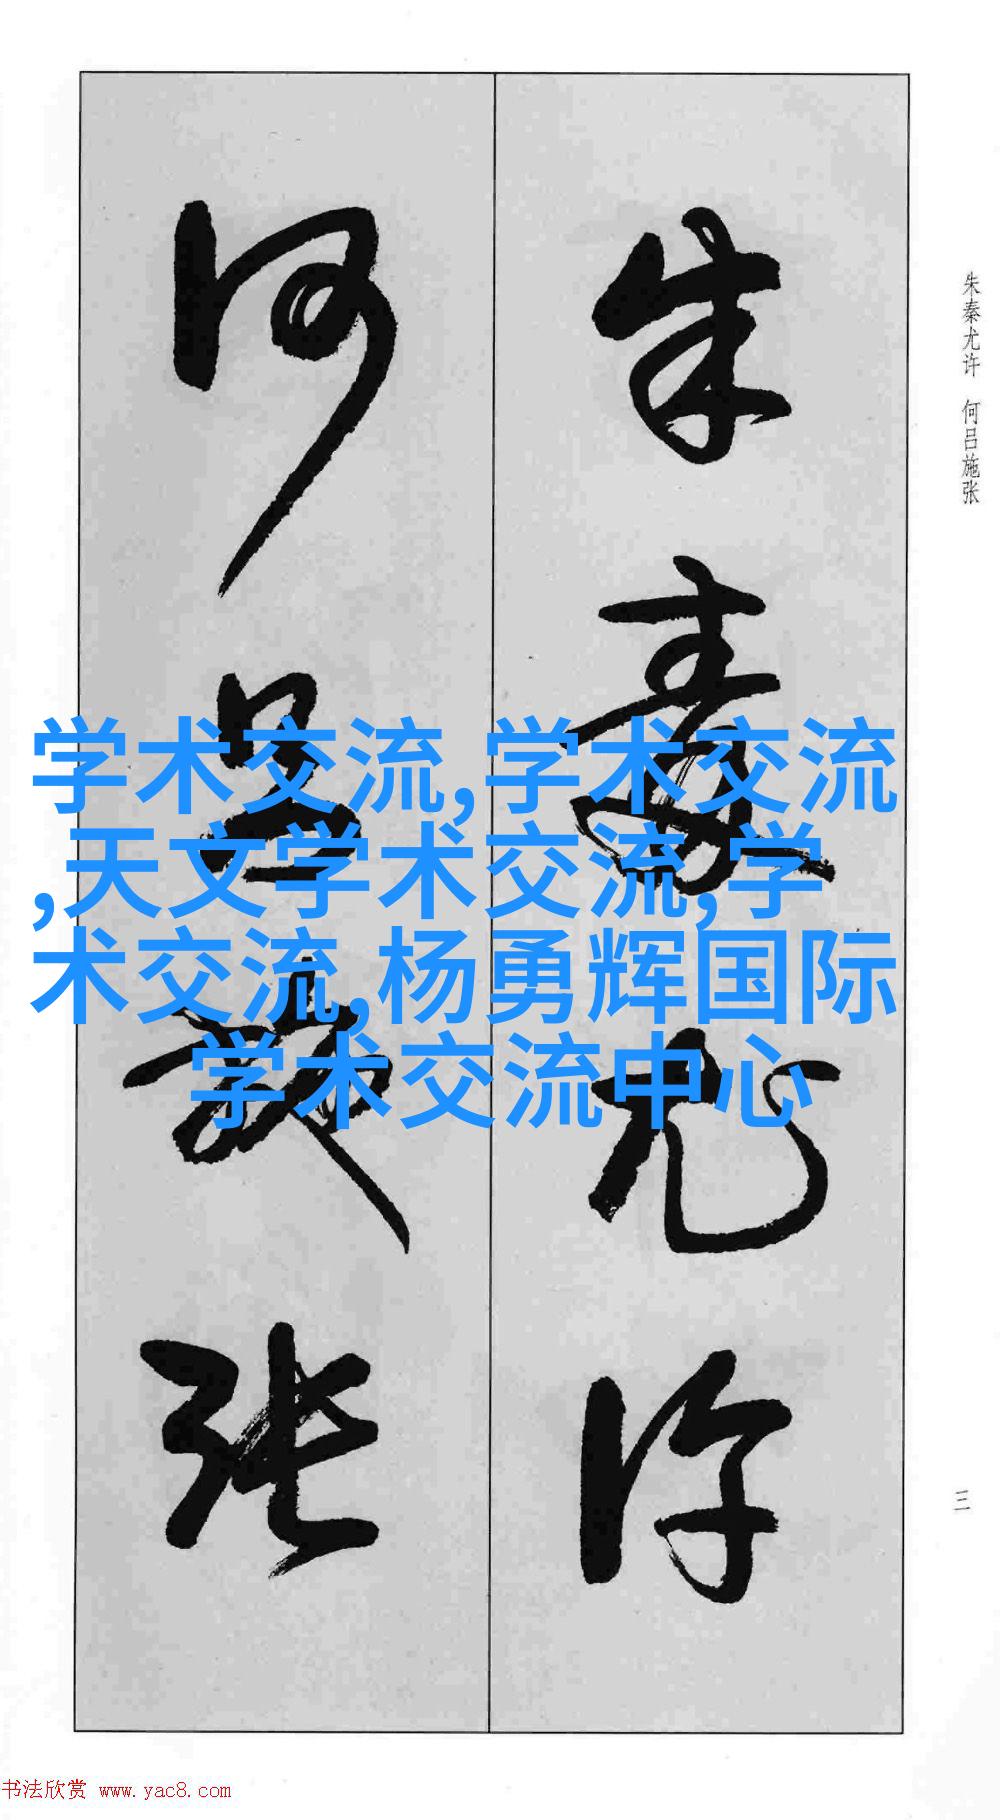 朱秦尤许
何吕施张
朱秦尤许 何吕施张
学术交流,学术交流
,天文学术交流,学
术交流,杨勇辉国际
学术交流中心
三
书法欣赏 www.yac8.com